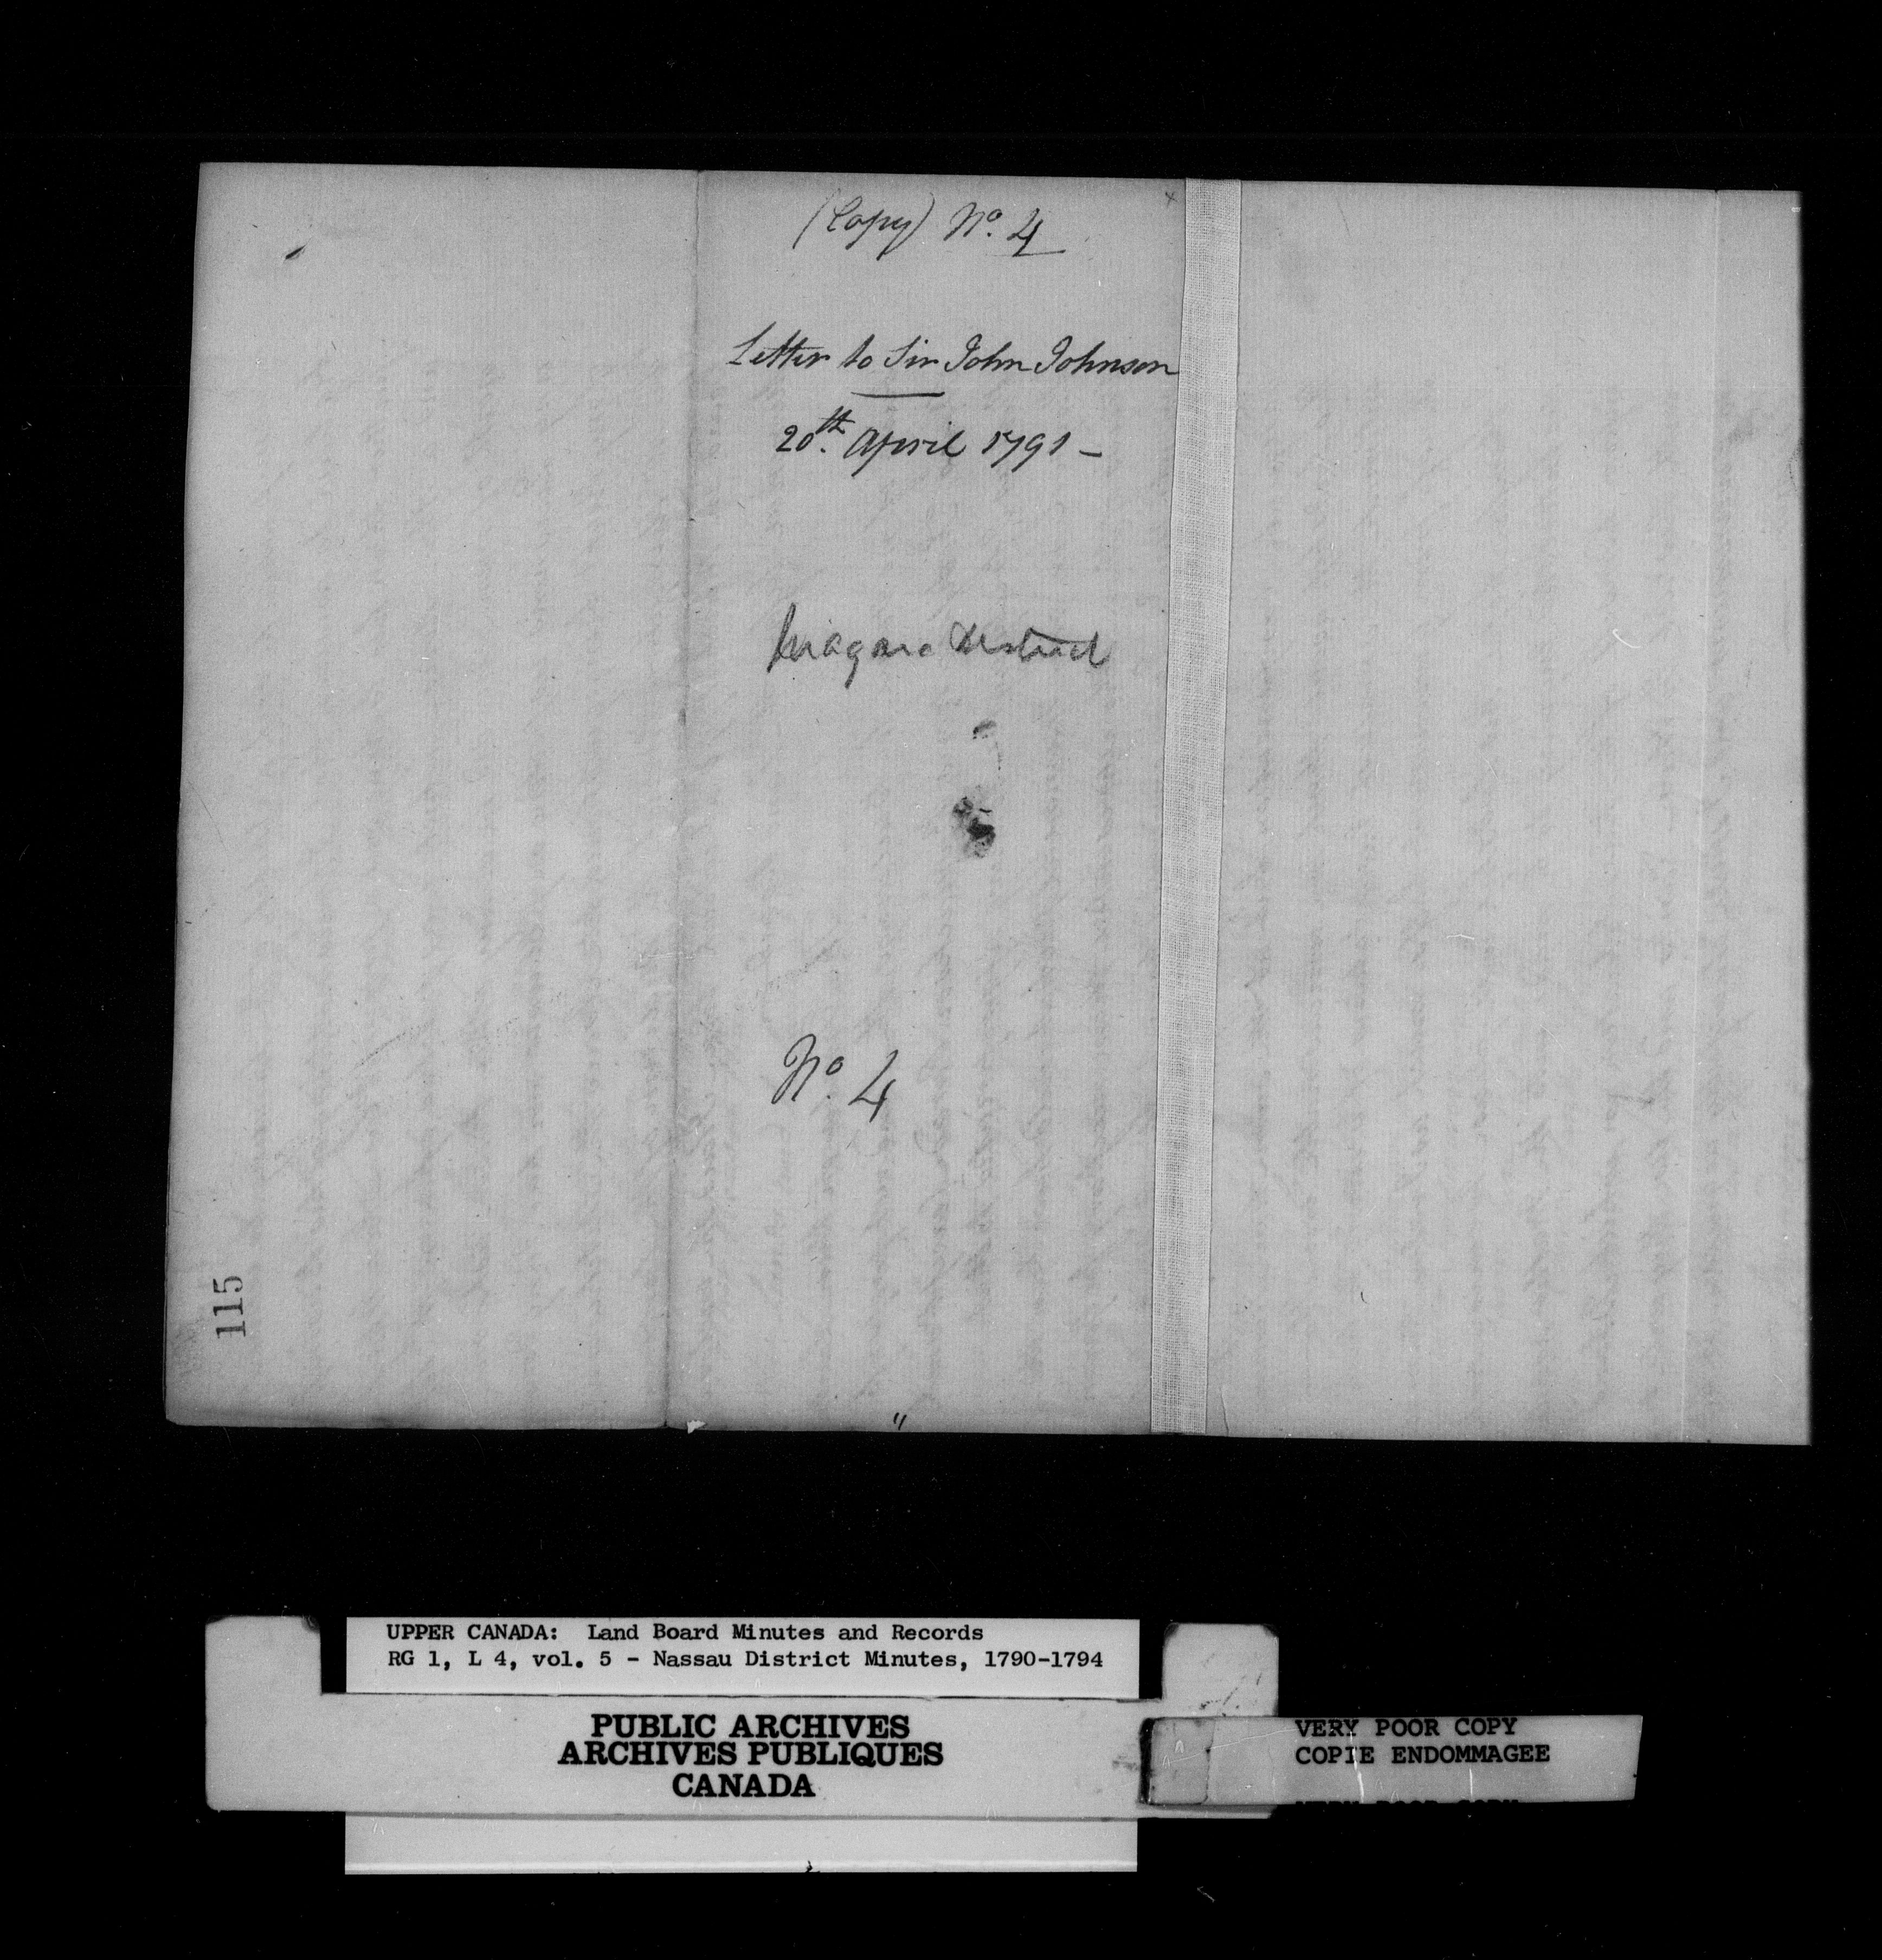 (Copy) No. 4
Letter to Sir John Johnson
20th. April 1791 -
Niagara District
No. 4
115
UPPER CANADA: Land Board Minutes and Records
RG 1, L 4, vol. 5 - Nassau District Minutes, 1790-1794
PUBLIC ARCHIVES
ARCHIVES PUBLIQUES
CANADA
VERY POOR COPY
COPIE ENDOMMAGEE